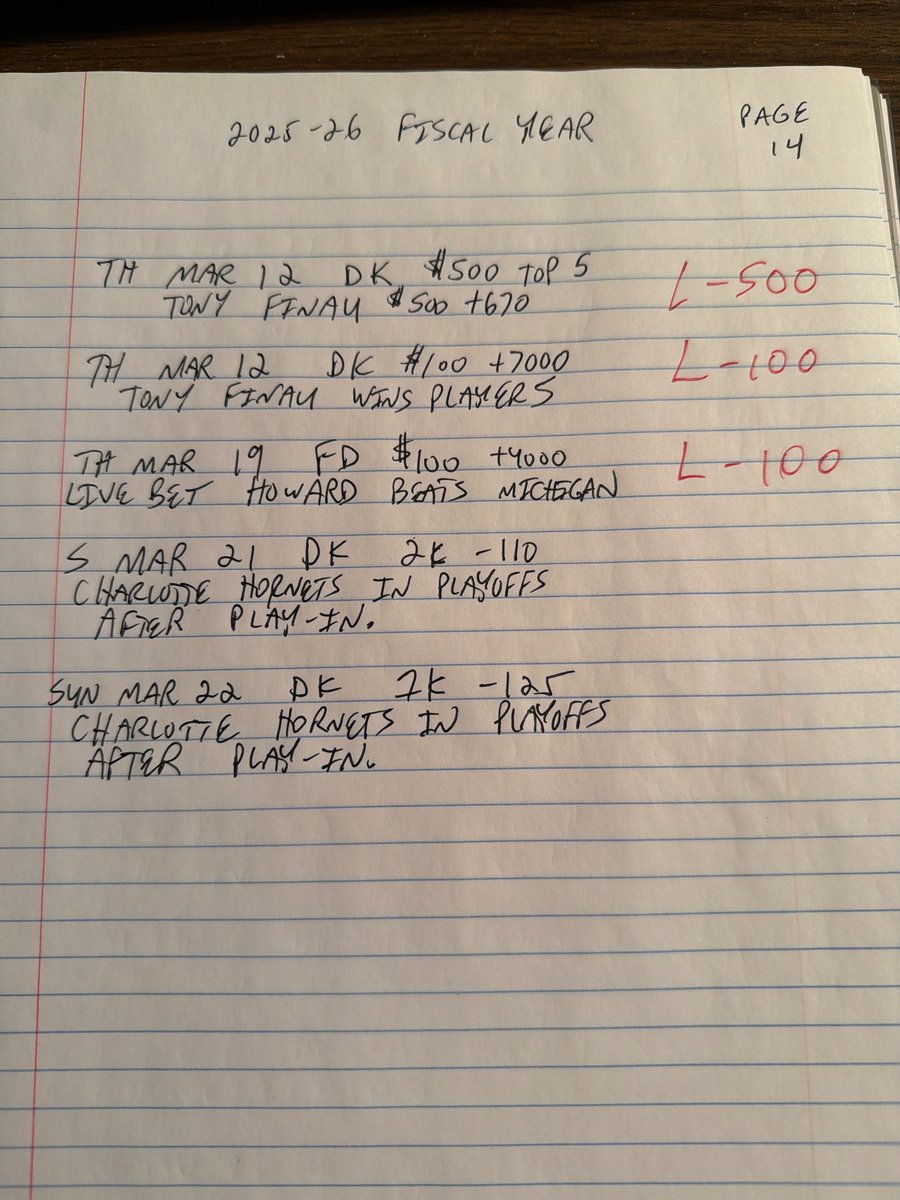 2025-26 FISCAL YEAR PAGE 14
TH MAR 12 DK $500 TOP 5 L-500
TONY FINAU $500 +670
TH MAR 12 DK $100 +7000 L-100
TONY FINAU WINS PLAYERS
TH MAR 19 FD $100 +4000 L-100
LIVE BET HOWARD BEATS MICHIGAN
S MAR 21 DK 2K -110
CHARLOTTE HORNETS IN PLAYOFFS
AFTER PLAY-IN.
SUN MAR 22 DK 1K -125
CHARLOTTE HORNETS IN PLAYOFFS
AFTER PLAY-IN.